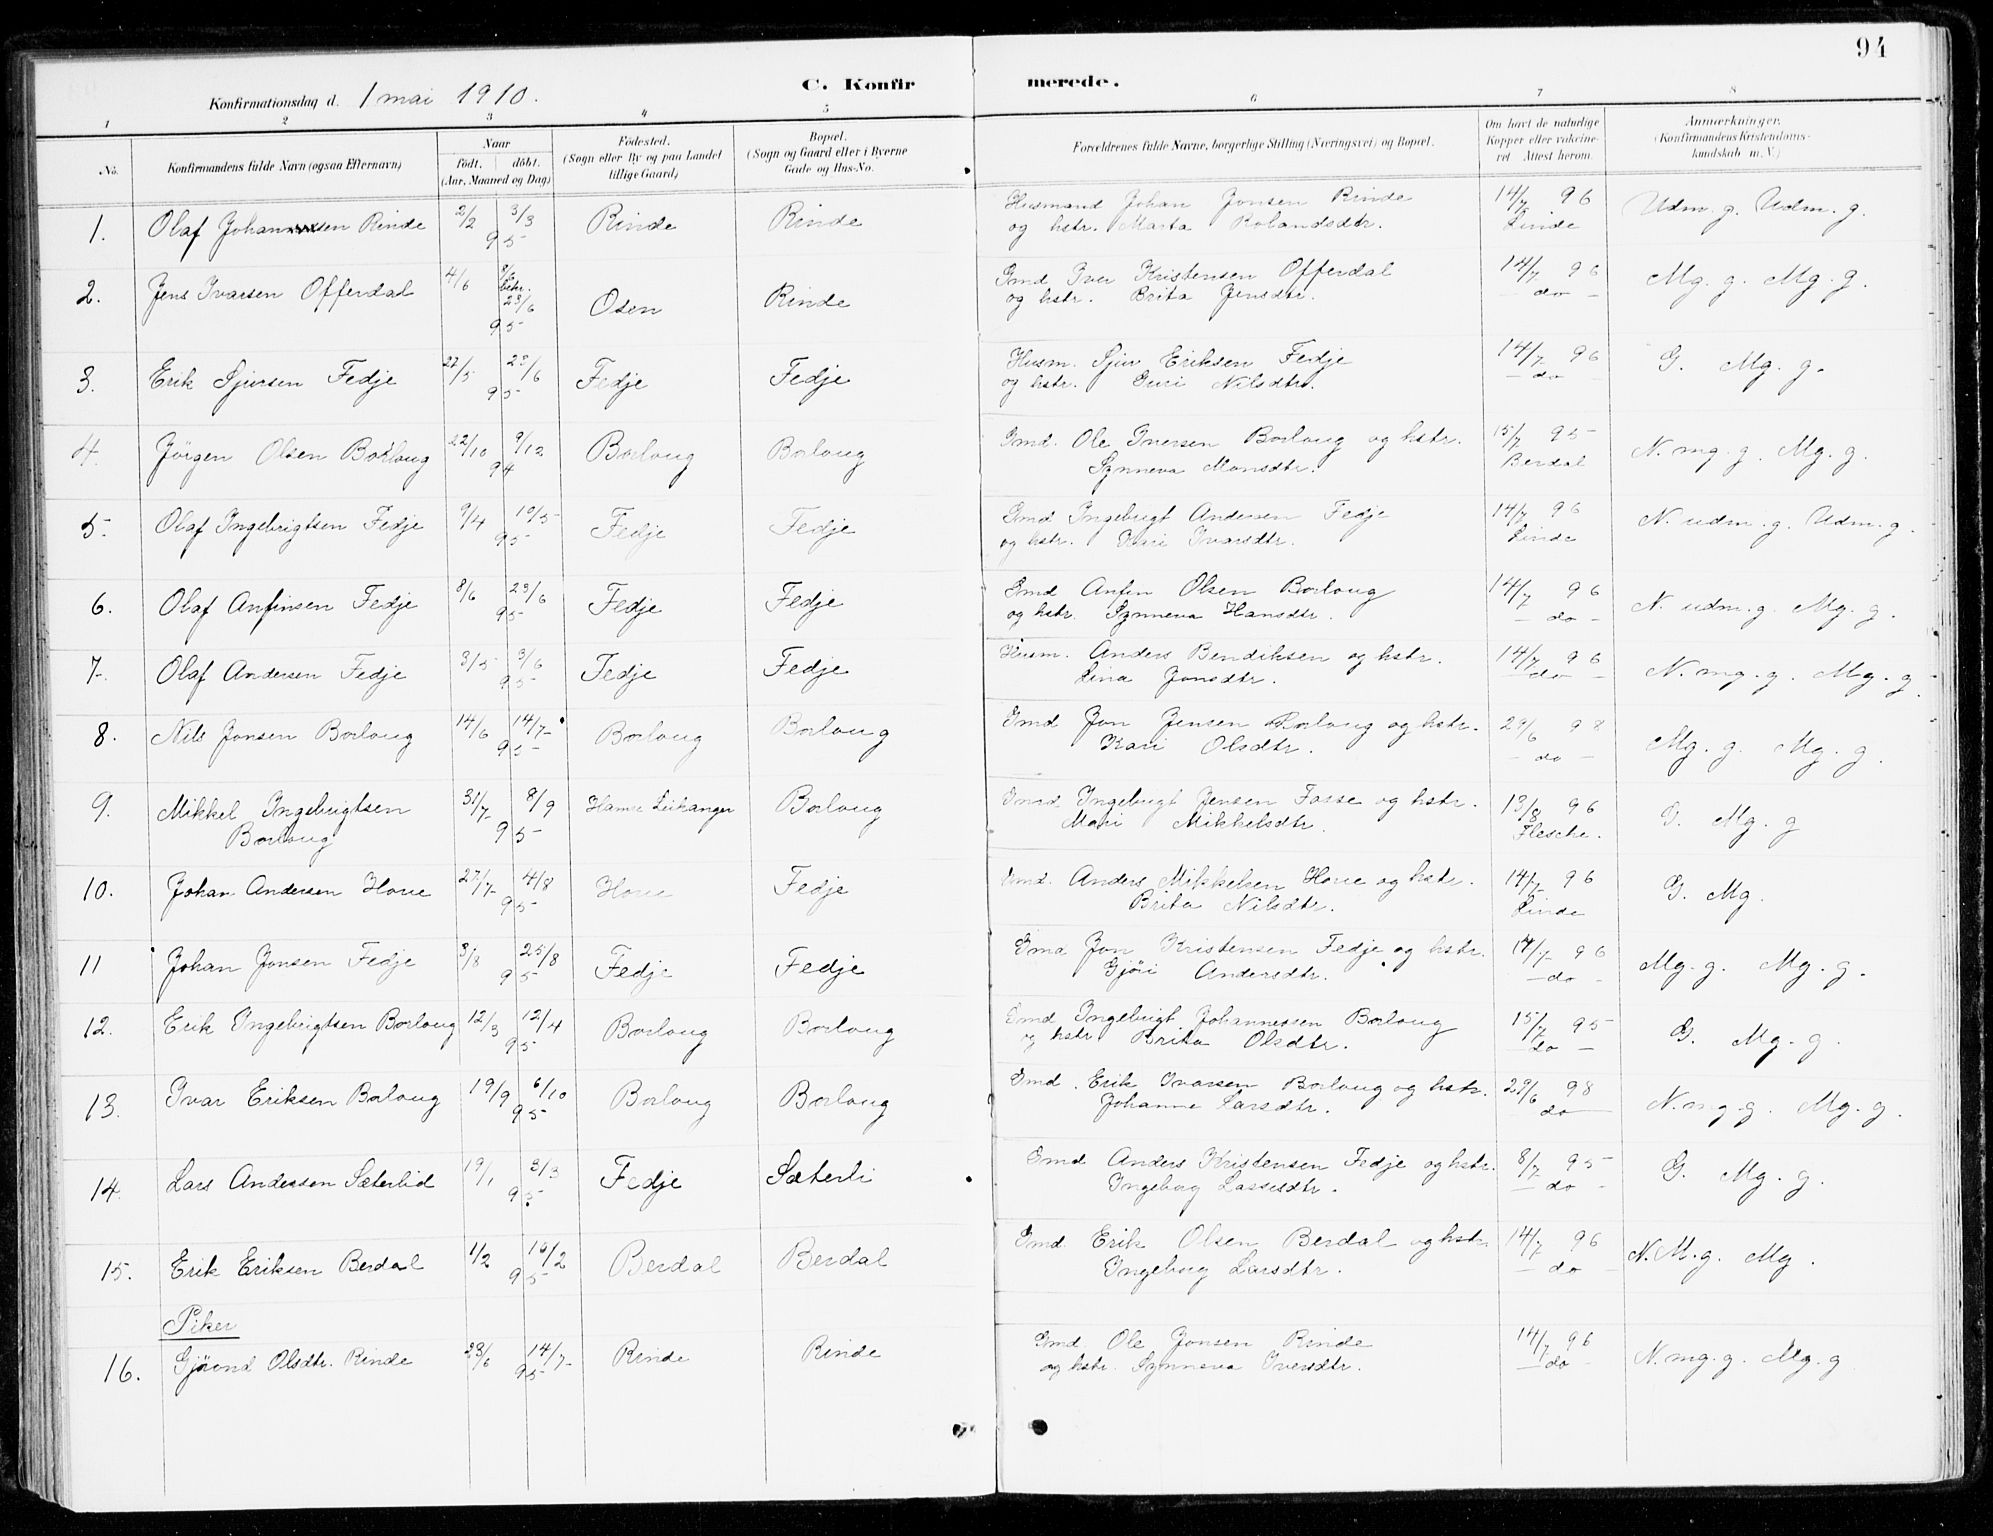 94
C. Konfirmerede.
Konfirmationsdag d. 1 mai 1910.
1 2 3 4 5 6 7 8
No. Konfirmandens fulde Navn (ogsaa Efternavn) Naar født. døbt. (Aar, Maaned og Dag) Fødested. (Sogn eller By og paa Landet tillige Gaard) Bopæl. (Sogn og Gaard eller i Byerne Gade og Hus-No. Forældrenes fulde Navne, borgerlige Stilling (Næringsvei) og Bopæl. Om havt de naturlige Kopper eller vakcineret Attest herom. Anmærkninger. (Konfirmandens Kristendomskundskab m. V.)
1. Olaf Johansen Rinde 2/2 3/3 95 Rinde Rinde Husmand Johan Jonsen Rinde 14/7 96 Udm. g. Udm. g.
og hstr. Marta Rolandsdtr. Linde
2. Jens Ivarsen Offerdal 4/6 23/6 95 Osen Rinde Gmd Iver Kristensen Offerdal 14/7 96 Mg. g. Mg. g.
og hstr. Brita Jensdtr. do
3. Erik Sjursen Fedje 27/5 23/6 95 Fedje Fedje Husm. Sjur Eriksen Fedje 14/7 96 G. Mg. g.
og hstr. Guri Nilsdtr. do
4. Jørgen Olsen Borlaug 22/10 9/12 94 Borlaug Borlaug Gmd. Ole Iversen Borlaug og hstr. 15/7 95 N. mg. g. Mg. g.
Synneva Monsdtr. Berdal
5. Olaf Ingebrigtsen Fedje 9/4 19/5 95 Fedje Fedje Gmd Ingebrigt Andersen Fedje 14/7 96 N. udm. g. Udm. g.
og hstr. Kari Ivarsdtr. Linde
6. Olaf Anfinsen Fedje 8/6 23/6 95 Fedje Fedje Gmd Anfin Olsen Borlaug 14/7 96 N. udm. g. Mg. g.
og hstr. Synneva Hansdtr. do
7. Olaf Andersen Fedje 3/5 3/6 95 Fedje Fedje Husm. Anders Bendiksen og hstr. 14/7 96 N. mg. g. Mg. g.
Lina Jonsdtr. do
8. Nils Jonsen Borlaug 14/6 14/7 95 Borlaug Borlaug Gmd Jon Jensen Borlaug og hstr. 29/6 98 Mg. g. Mg. g.
Kari Olsdtr. do
9. Mikkel Ingebrigtsen 31/7 8/9 95 Hamre Leikanger Borlaug Gmd Ingebrigt Jensen Fosse og hstr. 13/8 96 G. Mg. g
Borlaug Mari Mikkelsdtr. Flesche.
10. Johan Andersen Hove 27/7 4/8 95 Hove Fedje Gmd. Anders Mikkelsen Hove og hstr. 14/7 96 G. Mg.
Brita Nilsdtr. Linde
11 Johan Jonsen Fedje 3/8 25/8 95 Fedje Fedje Gmd Jon Kristensen Fedje og hstr. 14/7 96 Mg. g. Mg. g.
Gjøri Andersdtr. do
12. Erik Ingebrigtsen Borlaug 12/3 12/4 95 Borlaug Borlaug Gmd Ingebrigt Johannessen Borlaug 15/7 95 G. Mg. g.
og hstr Brita Olsdtr. do
13. Ivar Eriksen Borlaug 19/9 6/10 95 Borlaug Borlaug Gmd. Erik Ivarsen Borlaug og hstr. 29/6 98 N. mg. g. Mg. g.
Johanne Larsdtr. do
14. Lars Andersen Sæterlid 19/1 3/3 95 Fedje Sæterli Gmd Anders Kristensen Fedje og hstr. 8/7 95 G. Mg. g.
Ingeborg Lassesdtr. do
15. Erik Eriksen Berdal 1/2 10/2 95 Berdal Berdal Gmd. Erik Olsen Berdal og hstr. 14/7 96 N. M. g. Mg.
Ingeborg Larsdtr. do
Piker
16. Gjøend Olsdtr. Rinde 23/6 14/7 95 Rinde Rinde Gmd Ole Jonsen Rinde 14/7 96 N. mg. g. Mg. g
og hstr. Synneva Iversdtr. do